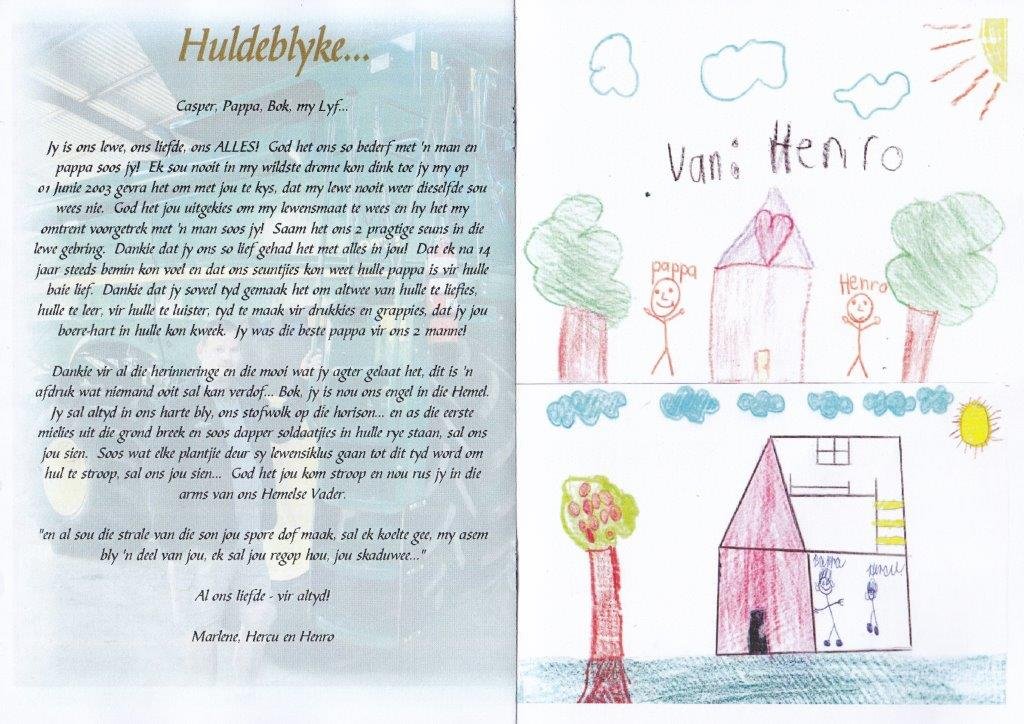 Huldeblyke...
Casper, Pappa, Bok, my Lyf...
Jy is ons lewe, ons liefde, ons ALLES!  God het ons so bederf met 'n man en
pappa soos jy!  Ek sou nooit in my wildste drome kon dink toe jy my op
01 Junie 2003 gevra het om met jou te kys, dat my lewe nooit weer dieselfde sou
wees nie.  God het jou uitgekies om my lewensmaat te wees en hy het my
omtrent voorgetrek met 'n man soos jy!  Saam het ons 2 pragtige seuns in die
lewe gebring.  Dankie dat jy ons so lief gehad het met alles in jou!  Dat ek na 14
jaar steeds bemin kon voel en dat ons seuntjies kon weet hulle pappa is vir hulle
baie lief.  Dankie dat jy soveel tyd gemaak het om altwee van hulle te liefles,
hulle te leer, vir hulle te luister, tyd te maak vir drukkies en grappies, dat jy jou
boere-hart in hulle kon kweek.  Jy was die beste pappa vir ons 2 manne!
Dankie vir al die herinneringe en die mooi wat jy agter gelaat het, dit is 'n
afdruk wat niemand ooit sal kan verdof... Bok, jy is nou ons engel in die Hemel.
Jy sal altyd in ons harte bly, ons stofwolk op die horison... en as die eerste
mielies uit die grond breek en soos dapper soldaatjies in hulle rye staan, sal ons
jou sien.  Soos wat elke plantjie deur sy lewensiklus gaan tot dit tyd word om
hul te stroop, sal ons jou sien...  God het jou kom stroop en nou rus jy in die
arms van ons Hemelse Vader.
"en al sou die strale van die son jou spore dof maak, sal ek koelte gee, my asem
bly 'n deel van jou, ek sal jou regop hou, jou skaduwee..."
Al ons liefde - vir altyd!
Marlene, Herçu en Henro
Van: Henro
pappa
Henro
Pappa